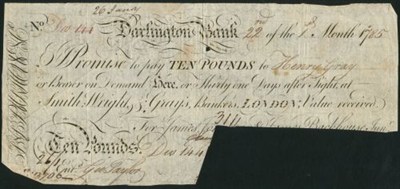 26 Jany
No. Dar 144 Darlington Bank 22nd of the 1st Month 1785
I Promise to pay TEN POUNDS to Henry Gray
or Bearer on Demand Here, or Thirty one Days after Sight, at
Smith Wright, & Grays, Bankers, LONDON; Value received
314
For James
Ten Pounds. Dar 144
Entd. Geo Taylor